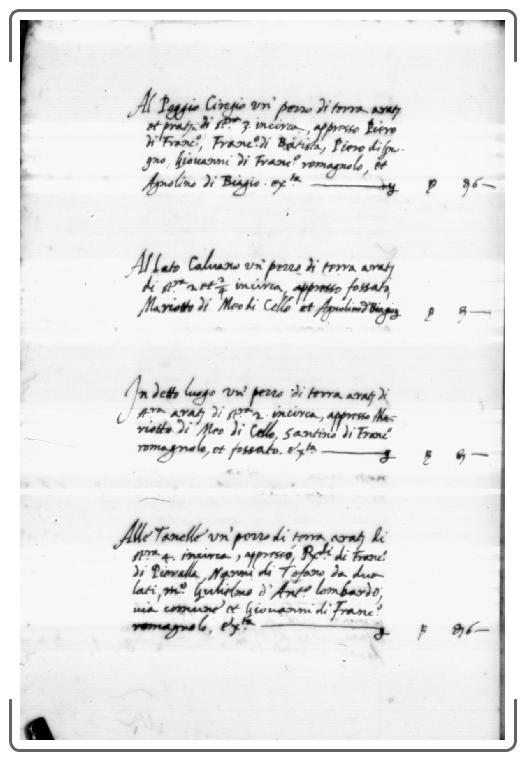 Al Poggio Ciregio un' pezzo di terra arat.
et prat. di st.ra 3. incirca, appresso Piero
di Franc.o, Franc.o di Batista, Piero di
gno, Giovanni di Franc.o romagnolo, et
Agnolino di Biagio. &x.ta
Al Lato Calvano un' pezzo di terra arat.
di st.ra 2 et incirca, appresso fossato,
Mariotto di Meo di Cello et Agnolino d Biagio
In detto luogo un' pezzo di terra arat. di
st.ra arat. di st.ra 2. incirca, appresso Ma-
riotto di Meo di Cello, Santino di Franc.o
romagnolo, et fossato. &x.ta
Alle Tanelle un' pezzo di terra arat. di
st.ra 4. incirca, appresso, di Franc.o
di Pieralla, Nanni di Tofano da dua
lati, m.o Gulielmo d' Ant.o lombardo,
via comune et Giovanni di Franc.o
romagnolo, &x.ta